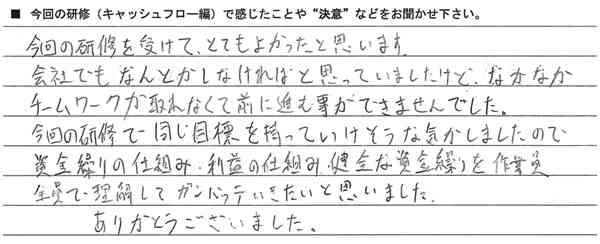 ■ 今回の研修（キャッシュフロー編）で感じたことや“決意”などをお聞かせ下さい。
今回の研修を受けて、とてもよかったと思います。
会社でもなんとかしなければと思っていましたけど、なかなか
チームワークが取れなくて前に進む事ができませんでした。
今回の研修で同じ目標を持っていけそうな気がしましたので
資金繰りの仕組み・利益の仕組み・健全な資金繰りを作業員
全員で理解してガンバッティきたいと思いました。
ありがとうございました。